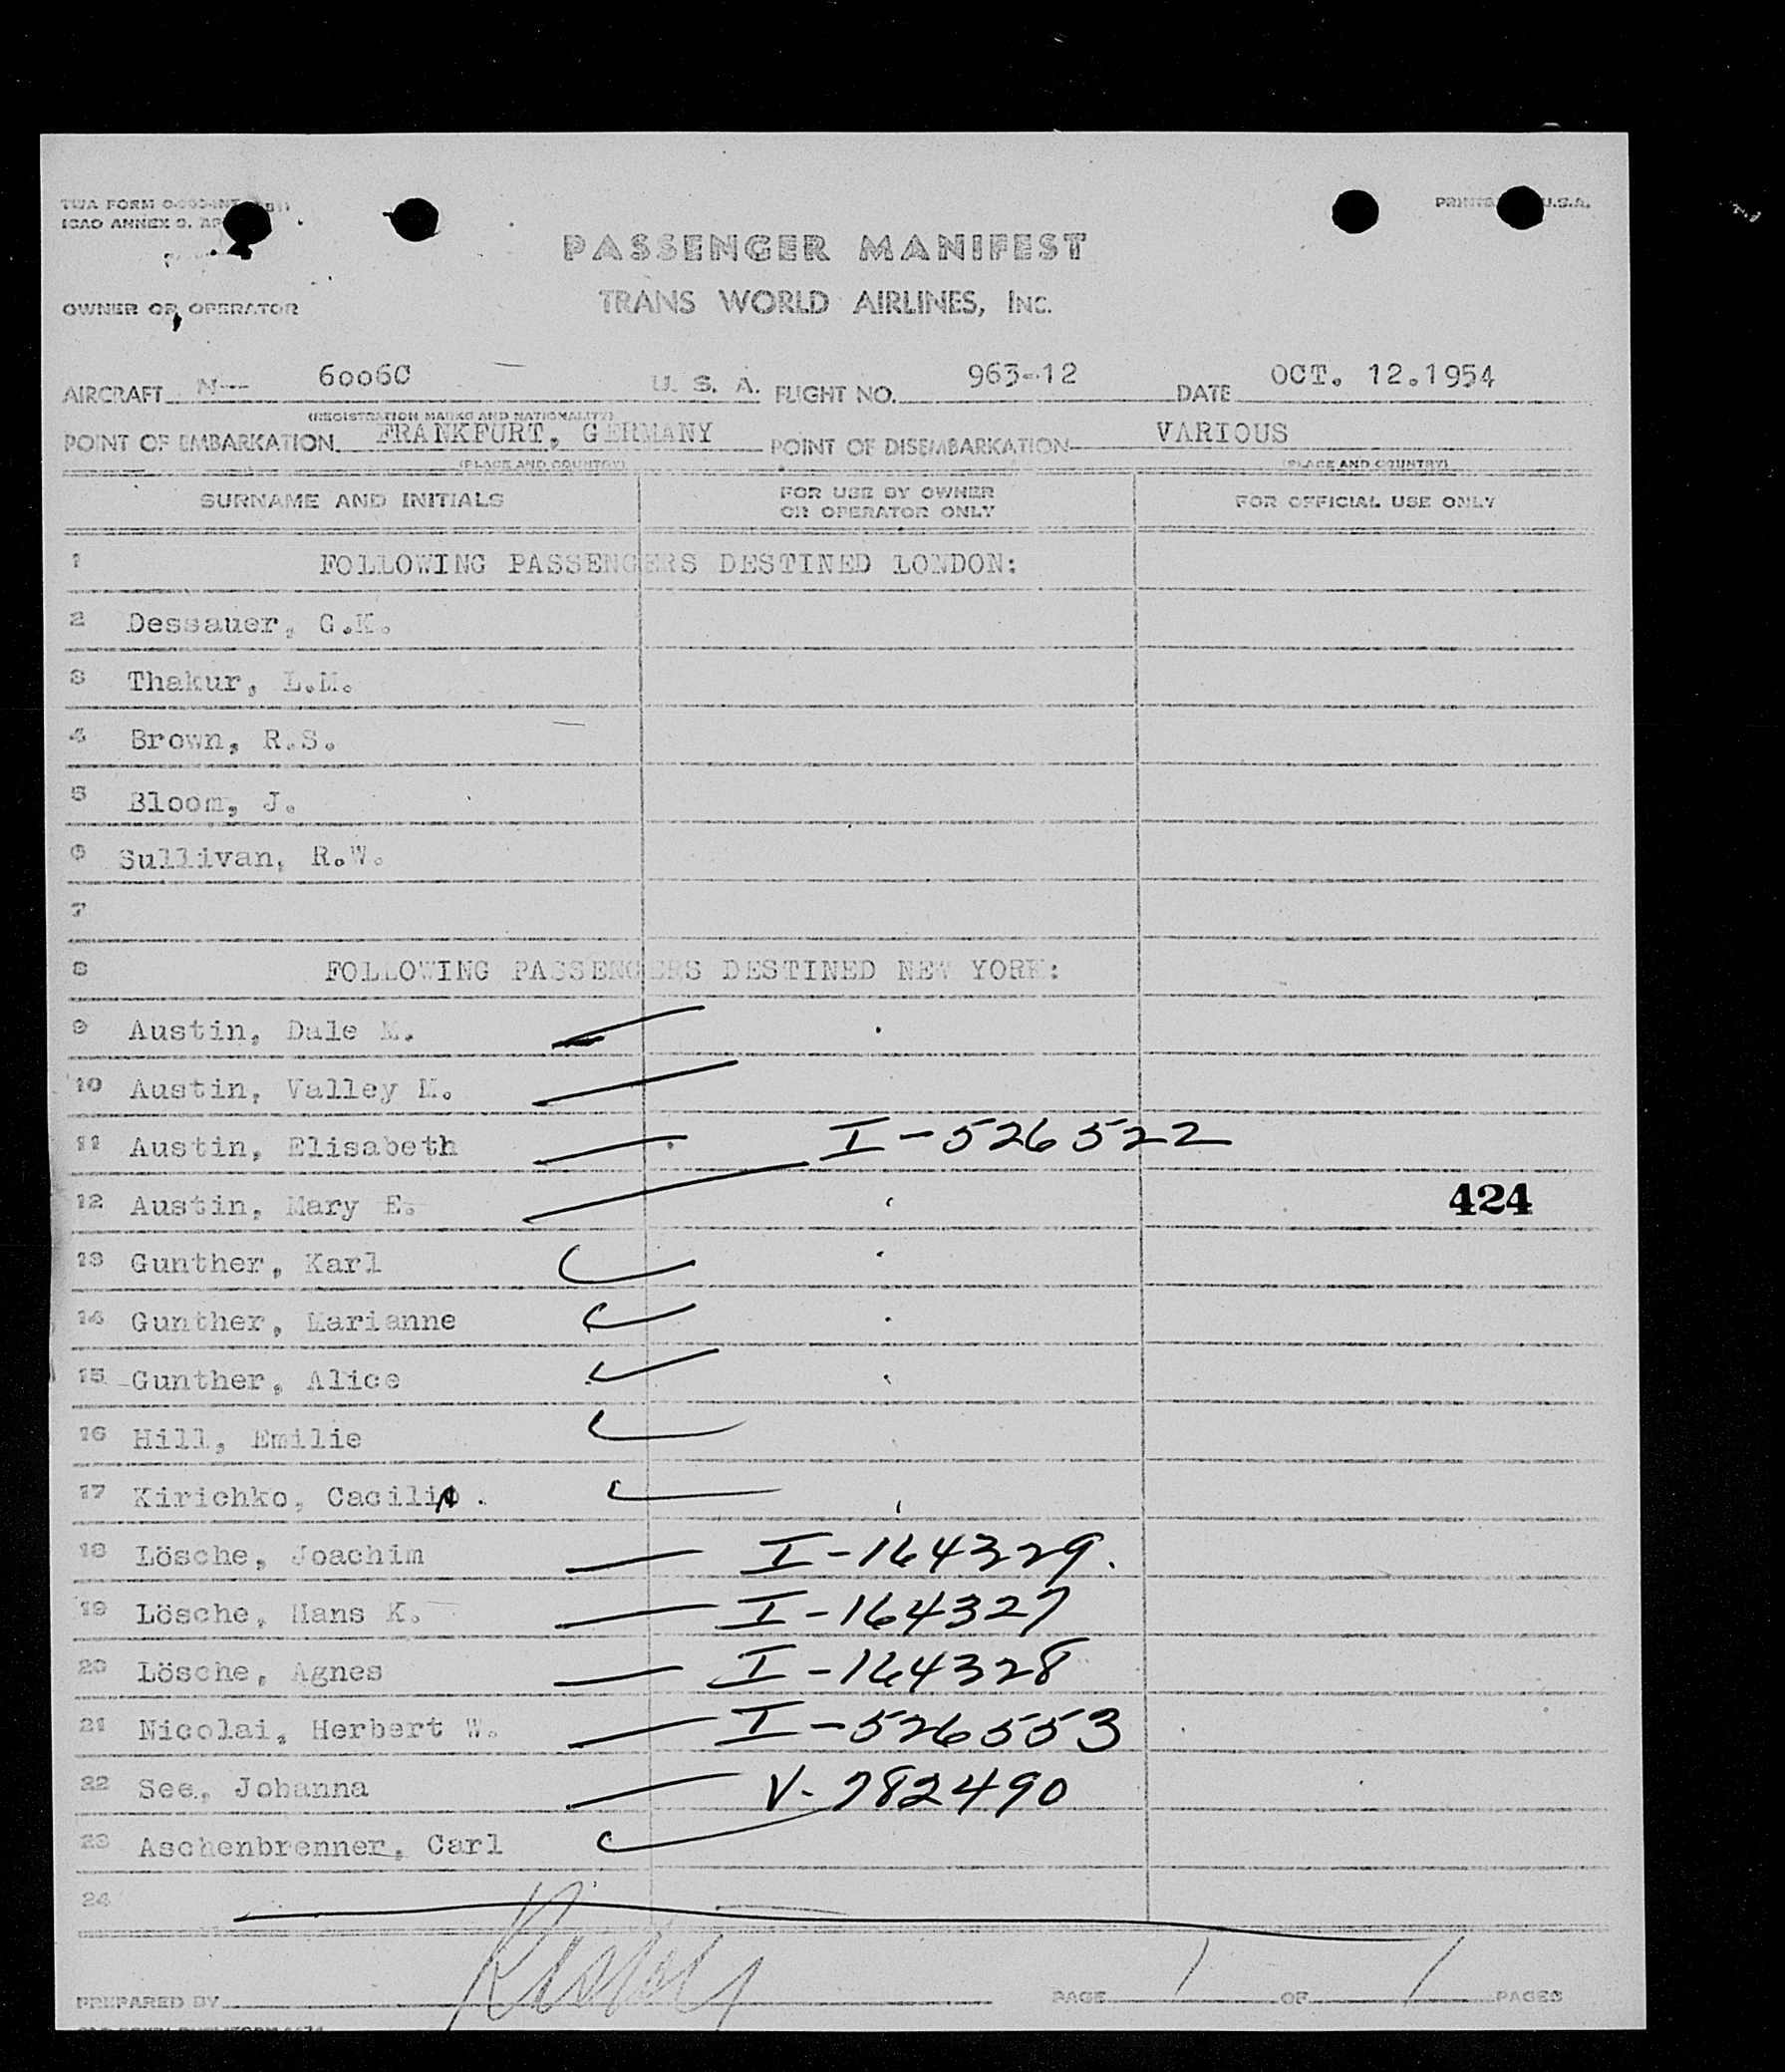 TWA FORM
ICAO ANNEX 9.
PRINTED U.S.A.
PASSENGER MANIFEST
OWNER OR OPERATOR
TRANS WORLD AIRLINES, INC.
AIRCRAFT N-- 6006C U. S. A. FLIGHT NO. 963-12 DATE OCT. 12.1954
(REGISTRATION MARKS AND NATIONALITY)
POINT OF EMBARKATION FRANKFURT, GERMANY POINT OF DISEMBARKATION VARIOUS
(PLACE AND COUNTRY) (PLACE AND COUNTRY)
SURNAME AND INITIALS FOR USE BY OWNER OR OPERATOR ONLY FOR OFFICIAL USE ONLY
1 FOLLOWING PASSENGERS DESTINED LONDON:
2 Dessauer, G.K.
3 Thakur, L.M.
4 Brown, R.S.
5 Bloom, J.
6 Sullivan, R.W.
7
8 FOLLOWING PASSENGERS DESTINED NEW YORK:
9 Austin, Dale M.
10 Austin, Valley M.
11 Austin, Elisabeth I-526522
12 Austin, Mary E. 424
13 Gunther, Karl
14 Gunther, Marianne
15 Gunther, Alice
16 Hill, Emilie
17 Kirichko, Cacilia.
18 Lösche, Joachim I-164329.
19 Lösche, Hans K. I-164327
20 Lösche, Agnes I-164328
21 Nicolai, Herbert W. I-526553
22 See, Johanna V-782490
23 Aschenbrenner, Carl
24
PREPARED BY PAGE 1 OF 1 PAGES